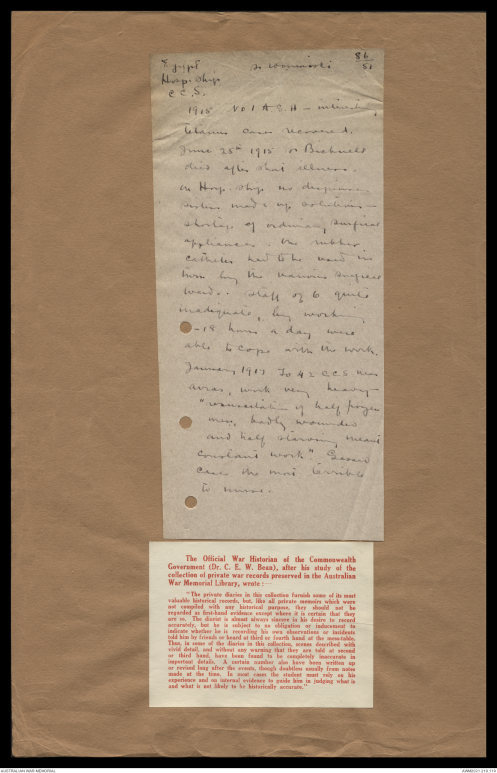 Egypt Sr Wassinski 86
Hosp. Ship 51
C C S.
1915 No 1 A G H –
tetanus cases recovered.
June 25th 1915 Sr Bicknell
died after short illness.
on Hosp. Ship no dispenser
sisters made up solutions –
shortage of ordinary surgical
appliances. One rubber
catheter had to be used in
turn by the various surgical
wards. Staff of 6 quite
inadequate, by working
– 18 hours a day were
able to cope with the work.
January 1917 To 42 CCS near
work very heavy
"resuscitation of half frozen
men, badly wounded
and half starving meant
constant work". Gassed
cases the most terrible
to nurse.
The Official War Historian of the Commonwealth
Government (Dr. C. E. W. Bean), after his study of the
collection of private war records preserved in the Australian
War Memorial Library, wrote :—
"The private diaries in this collection furnish some of its most
valuable historical records, but, like all private memoirs which were
not compiled with any historical purpose, they should not be
regarded as first-hand evidence except where it is certain that they
are so. The diarist is almost always sincere in his desire to record
accurately, but he is subject to no obligation or inducement to
indicate whether he is recording his own observations or incidents
told him by friends or heard at third or fourth hand at the mess-table.
Thus, in some of the diaries in this collection, scenes described with
vivid detail, and without any warning that they are told at second
or third hand, have been found to be completely inaccurate in
important details. A certain number also have been written up
or revised long after the events, though doubtless usually from notes
made at the time. In most cases the student must rely on his
experience and on internal evidence to guide him in judging what is
and what is not likely to be historically accurate."
AUSTRALIAN WAR MEMORIAL